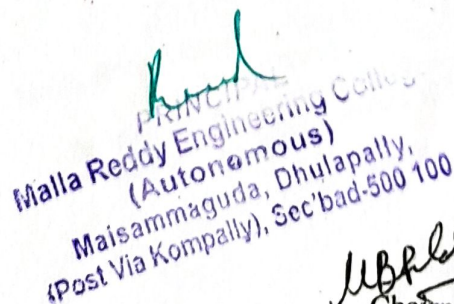 PRINCIPAL
Malla Reddy Engineering College
(Autonomous)
Maisammaguda, Dhulapally,
(Post Via Kompally), Sec'bad-500 100